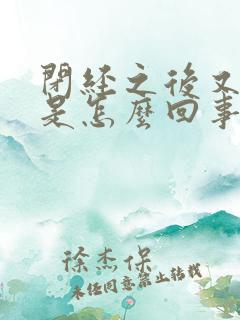 閉經之後又
是怎麼回事
徐杰保
未经同意禁止转载